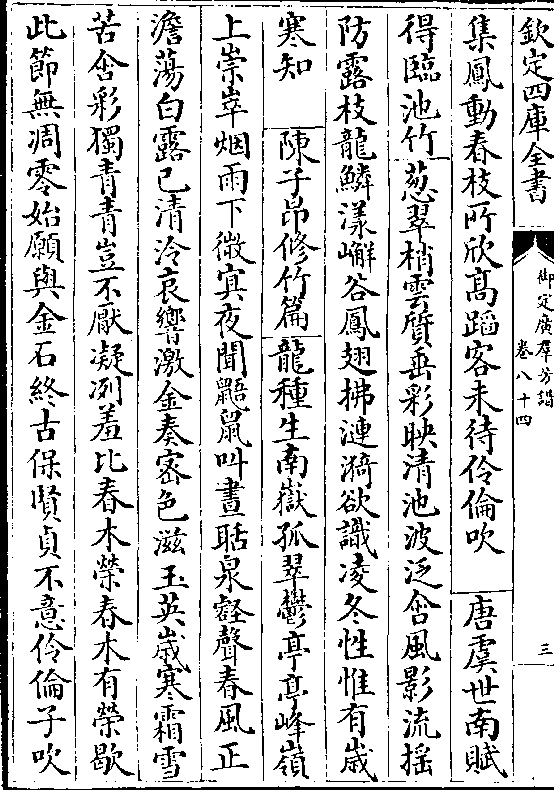 欽定四庫全書
御定廣羣芳譜
卷八十四
三
集鳳動春枝所欣高蹈客未待伶倫吹　唐虞世南賦
得臨池竹　葱翠梢雲質垂彩映清池波泛含風影流揺
防露枝龍鱗漾嶰谷鳳翅拂漣漪欲識凌冬性惟有嵗
寒知　陳子昂修竹篇　龍種生南嶽孤翠鬱亭亭峰嶺
上崇崒烟雨下微㝠夜聞鼯鼠叫晝聒泉壑聲春風正
澹蕩白露已清泠哀響激金奏宻色滋玉英嵗寒霜雪
苦含彩獨青青豈不厭凝冽羞比春木榮春木有榮歇
此節無凋零始願與金石終古保賢貞不意伶倫子吹